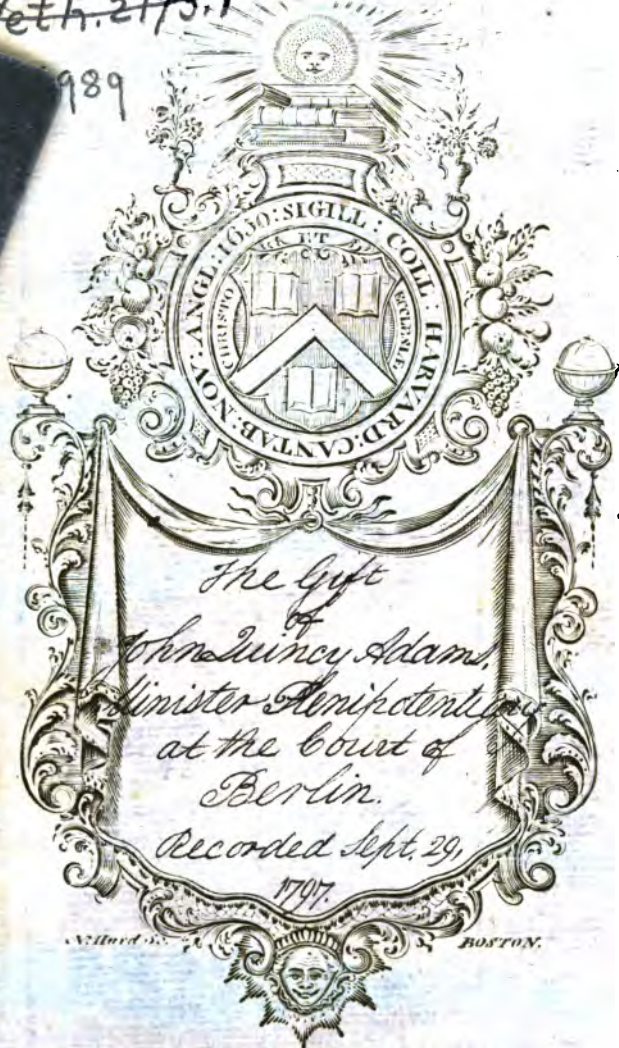 989
SIGILL : COLL : HARVARD: CANTAB: NOV: ANGL: 1650:
ET
CHRISTO
ECCLESIÆ
The Gift
of
John Quincy Adams,
Minister Plenipotentiary
at the Court of
Berlin.
Recorded Sept. 29,
1797.
N. Hurd Sc.
BOSTON.